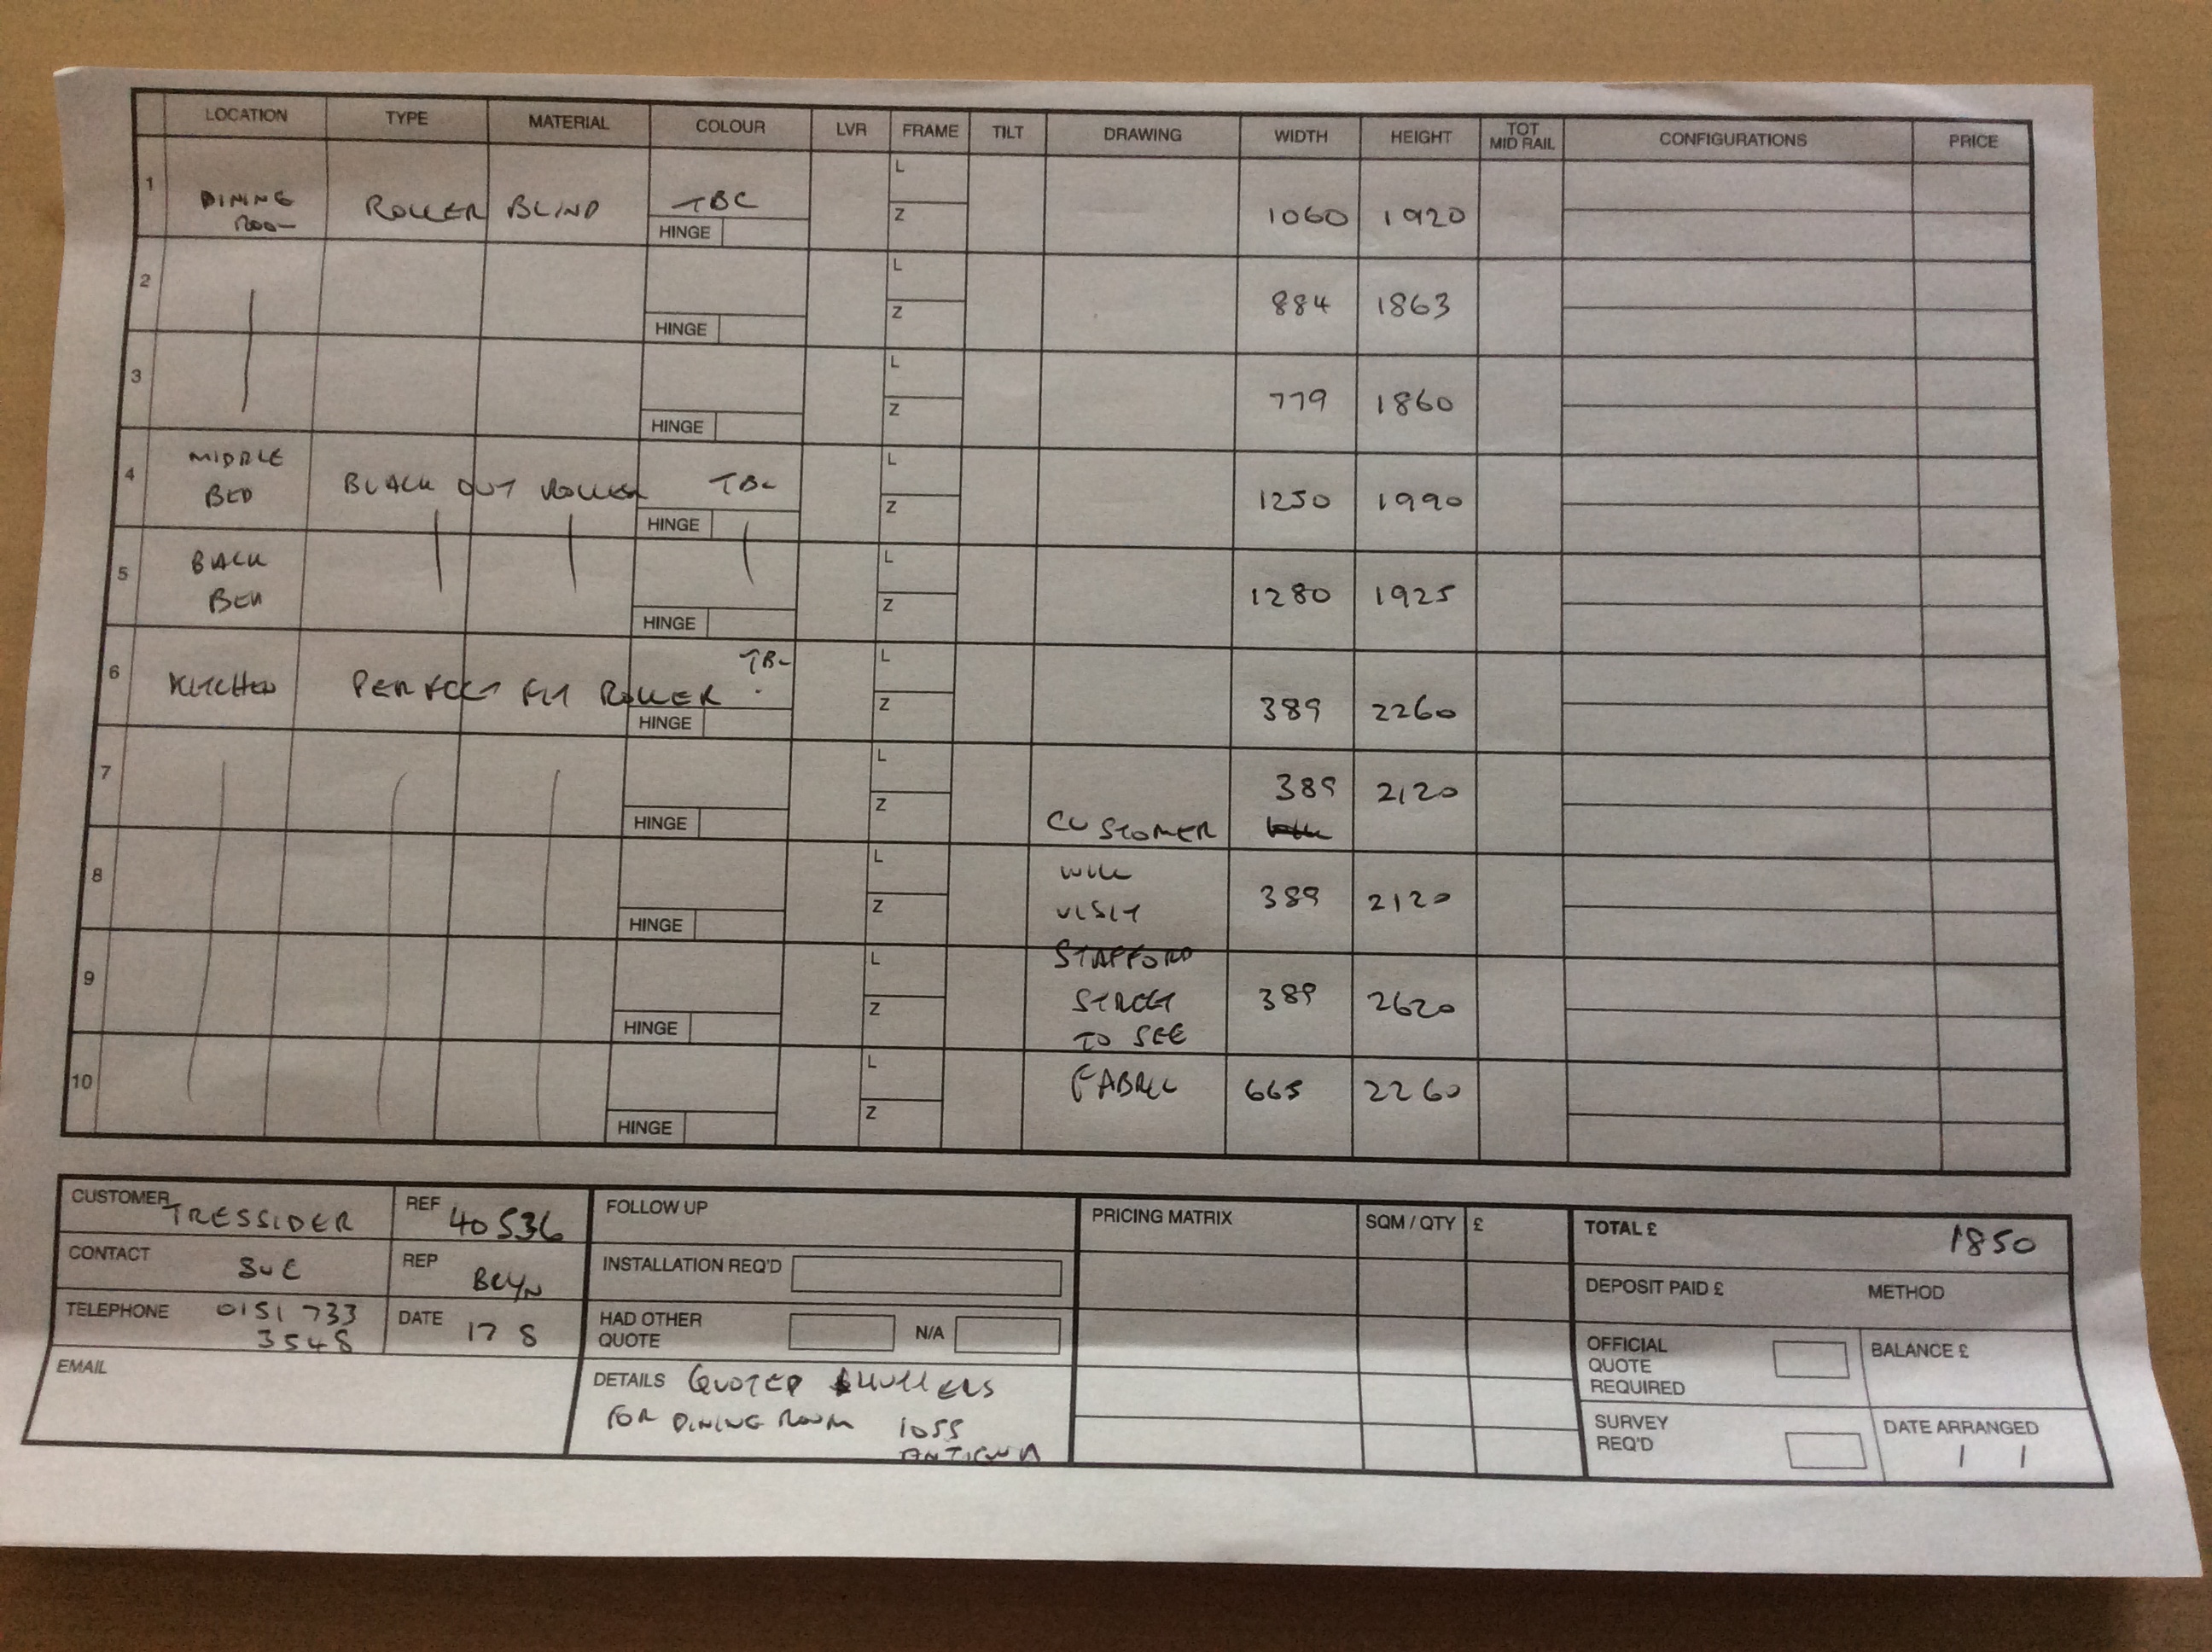 LOCATION TYPE MATERIAL COLOUR LVR FRAME TILT DRAWING WIDTH HEIGHT TOT MID RAIL CONFIGURATIONS PRICE
1 DINING ROOM ROLLER BLIND TBC HINGE L Z 1060 1920
2 HINGE L Z 884 1863
3 HINGE L Z 779 1860
4 MIDDLE BED BLACK OUT ROLLER TBC HINGE L Z 1250 1990
5 BACK BED HINGE L Z 1280 1925
6 KITCHEN PERFECT FIT ROLLER TBC HINGE L Z 389 2260
7 HINGE L Z CUSTOMER 389 2120
8 HINGE L Z WILL VISIT 389 2120
9 HINGE L Z STAFFORD STREET TO SEE 389 2620
10 HINGE L Z FABRIC 665 2260
CUSTOMER TRESSIDER
REF 40536
CONTACT SUE
REP
TELEPHONE 0151 733
3548
DATE 17 8
EMAIL
FOLLOW UP
INSTALLATION REQ'D
HAD OTHER
QUOTE
N/A
DETAILS QUOTED SHUTTERS
FOR DINING ROOM 1055
ANTIGUA
PRICING MATRIX SQM / QTY £
TOTAL £ 1850
DEPOSIT PAID £ METHOD
OFFICIAL
QUOTE
REQUIRED
BALANCE £
SURVEY
REQ'D
DATE ARRANGED
/ /